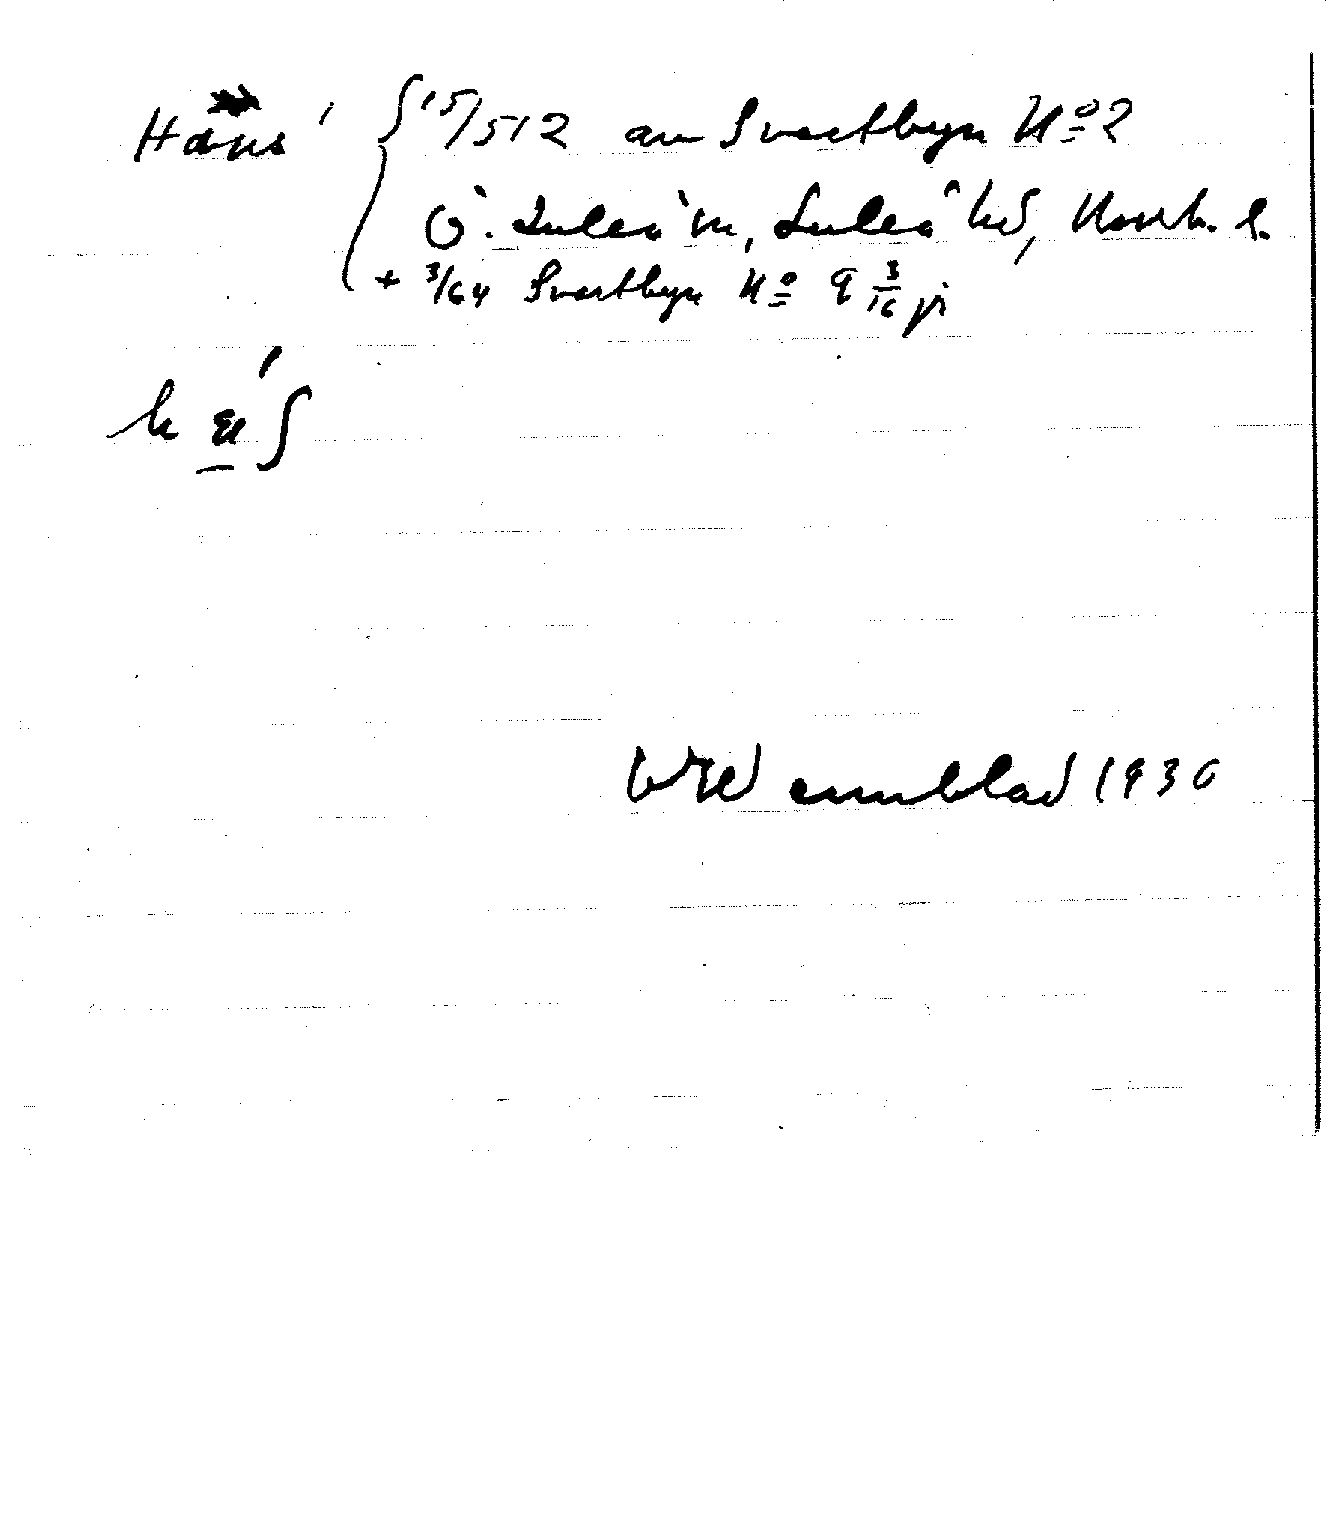 Häns' 15/512 av Svartbyn No 2
Ö. Luleå sn, Luleå hd, Norrb. l.
+ 3/64 Svartbyn No 9 3/16
Wennblad 1930